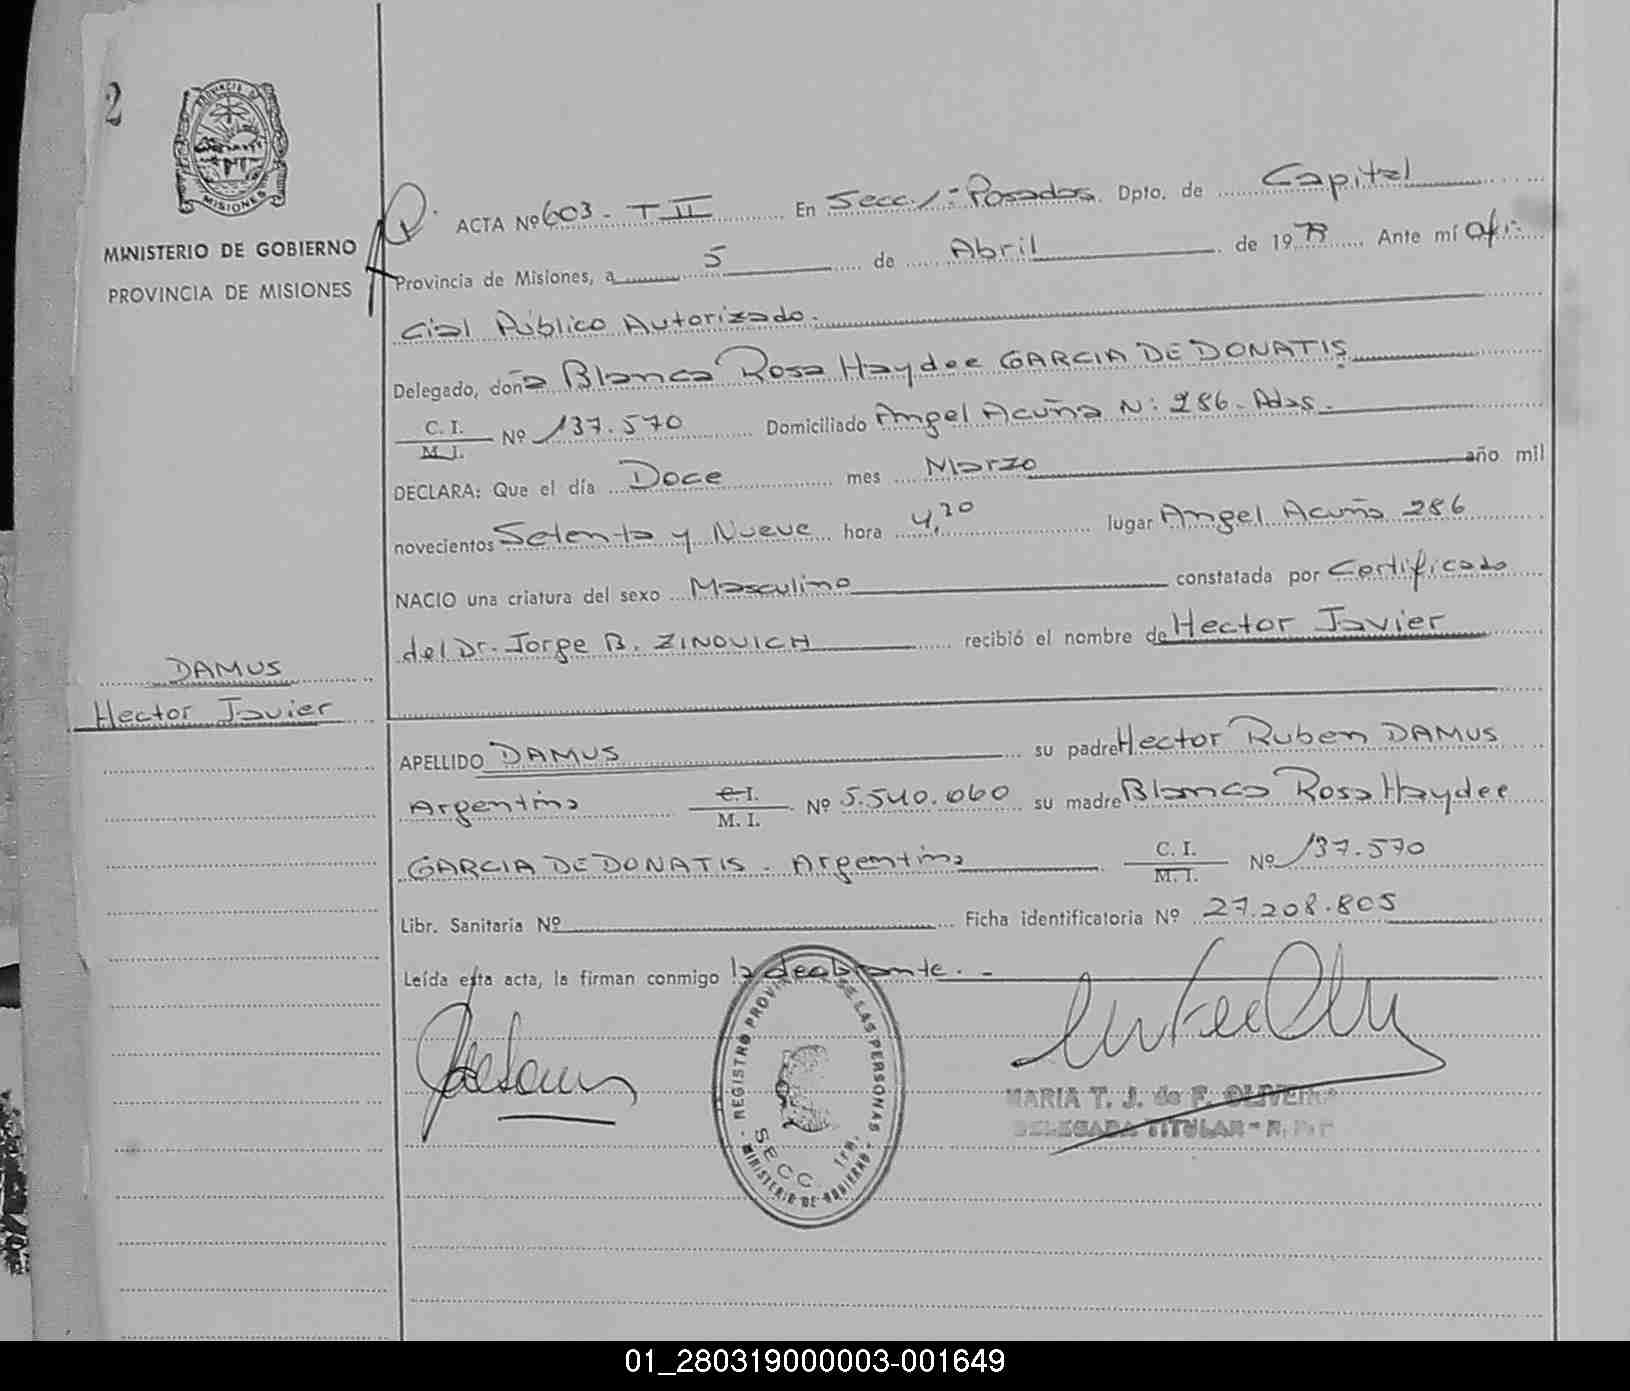 2
PROVINCIA DE
MISIONES
MINISTERIO DE GOBIERNO
PROVINCIA DE MISIONES
ACTA Nº 603 - T II En Secc. 1ª Posadas. Dpto. de Capital
Provincia de Misiones, a 5 de Abril de 1979 Ante mí Ofi-
cial Público Autorizado.
Delegado, doña Blanca Rosa Haydee GARCIA DE DONATIS
C. I. M. I. Nº 137.570 Domiciliado Angel Acuña N: 286 - Pdas.
DECLARA: Que el día Doce mes Marzo año mil
novecientos Setenta y Nueve hora 4,20 lugar Angel Acuña 286
NACIO una criatura del sexo Masculino constatada por Certificado
del Dr. Jorge B. ZINOVICH recibió el nombre de Hector Javier
DAMUS
Hector Javier
APELLIDO DAMUS su padre Hector Ruben DAMUS
Argentina C. I. M. I. Nº 5.540.060 su madre Blanca Rosa Haydee
GARCIA DE DONATIS - Argentina C. I. M. I. Nº 137.570
Libr. Sanitaria Nº Ficha identificatoria Nº 27.208.805
Leída esta acta, la firman conmigo la declarante. -
REGISTRO PROVINCIAL DE LAS PERSONAS
SECC 1ra.
MINISTERIO DE GOBIERNO
MARIA T. J. de F. OLIVEIRA
DELEGADA TITULAR - R. P. P.
01_280319000003-001649